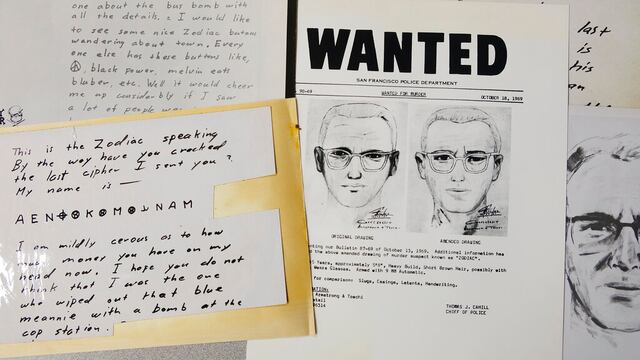 one about the bus bomb with
all the details. I would like
to see some nice Zodiac butons
wandering about town. Every
one else has these buttons like,
black power, melvin eats
bluber, etc. Well it would cheer
me up considerably if I saw
a lot of people
This is the Zodiac speaking
By the way have you cracked
the last cipher I sent you ?
My name is —
AEN⊕⊗K⊗M⊗⅃NAM
I am mildly cerous as to how
much money you have on my
head now. I hope you do not
think that I was the one
who wiped out that blue
meannie with a bomb at the
cop station.
WANTED
SAN FRANCISCO POLICE DEPARTMENT
90-69 WANTED FOR MURDER OCTOBER 18, 1969
ORIGINAL DRAWING AMENDED DRAWING
our Bulletin 87-69 of October 13, 1969. Additional information has
the above amended drawing of murder suspect known as "ZODIAC".
Years, approximately 5'8", Heavy Build, Short Brown Hair, possibly with
Glasses. Armed with 9 MM Automatic.
for comparison: Slugs, Casings, Latents, Handwriting.
Armstrong & Toschi
THOMAS J. CAHILL
CHIEF OF POLICE
last
is
his